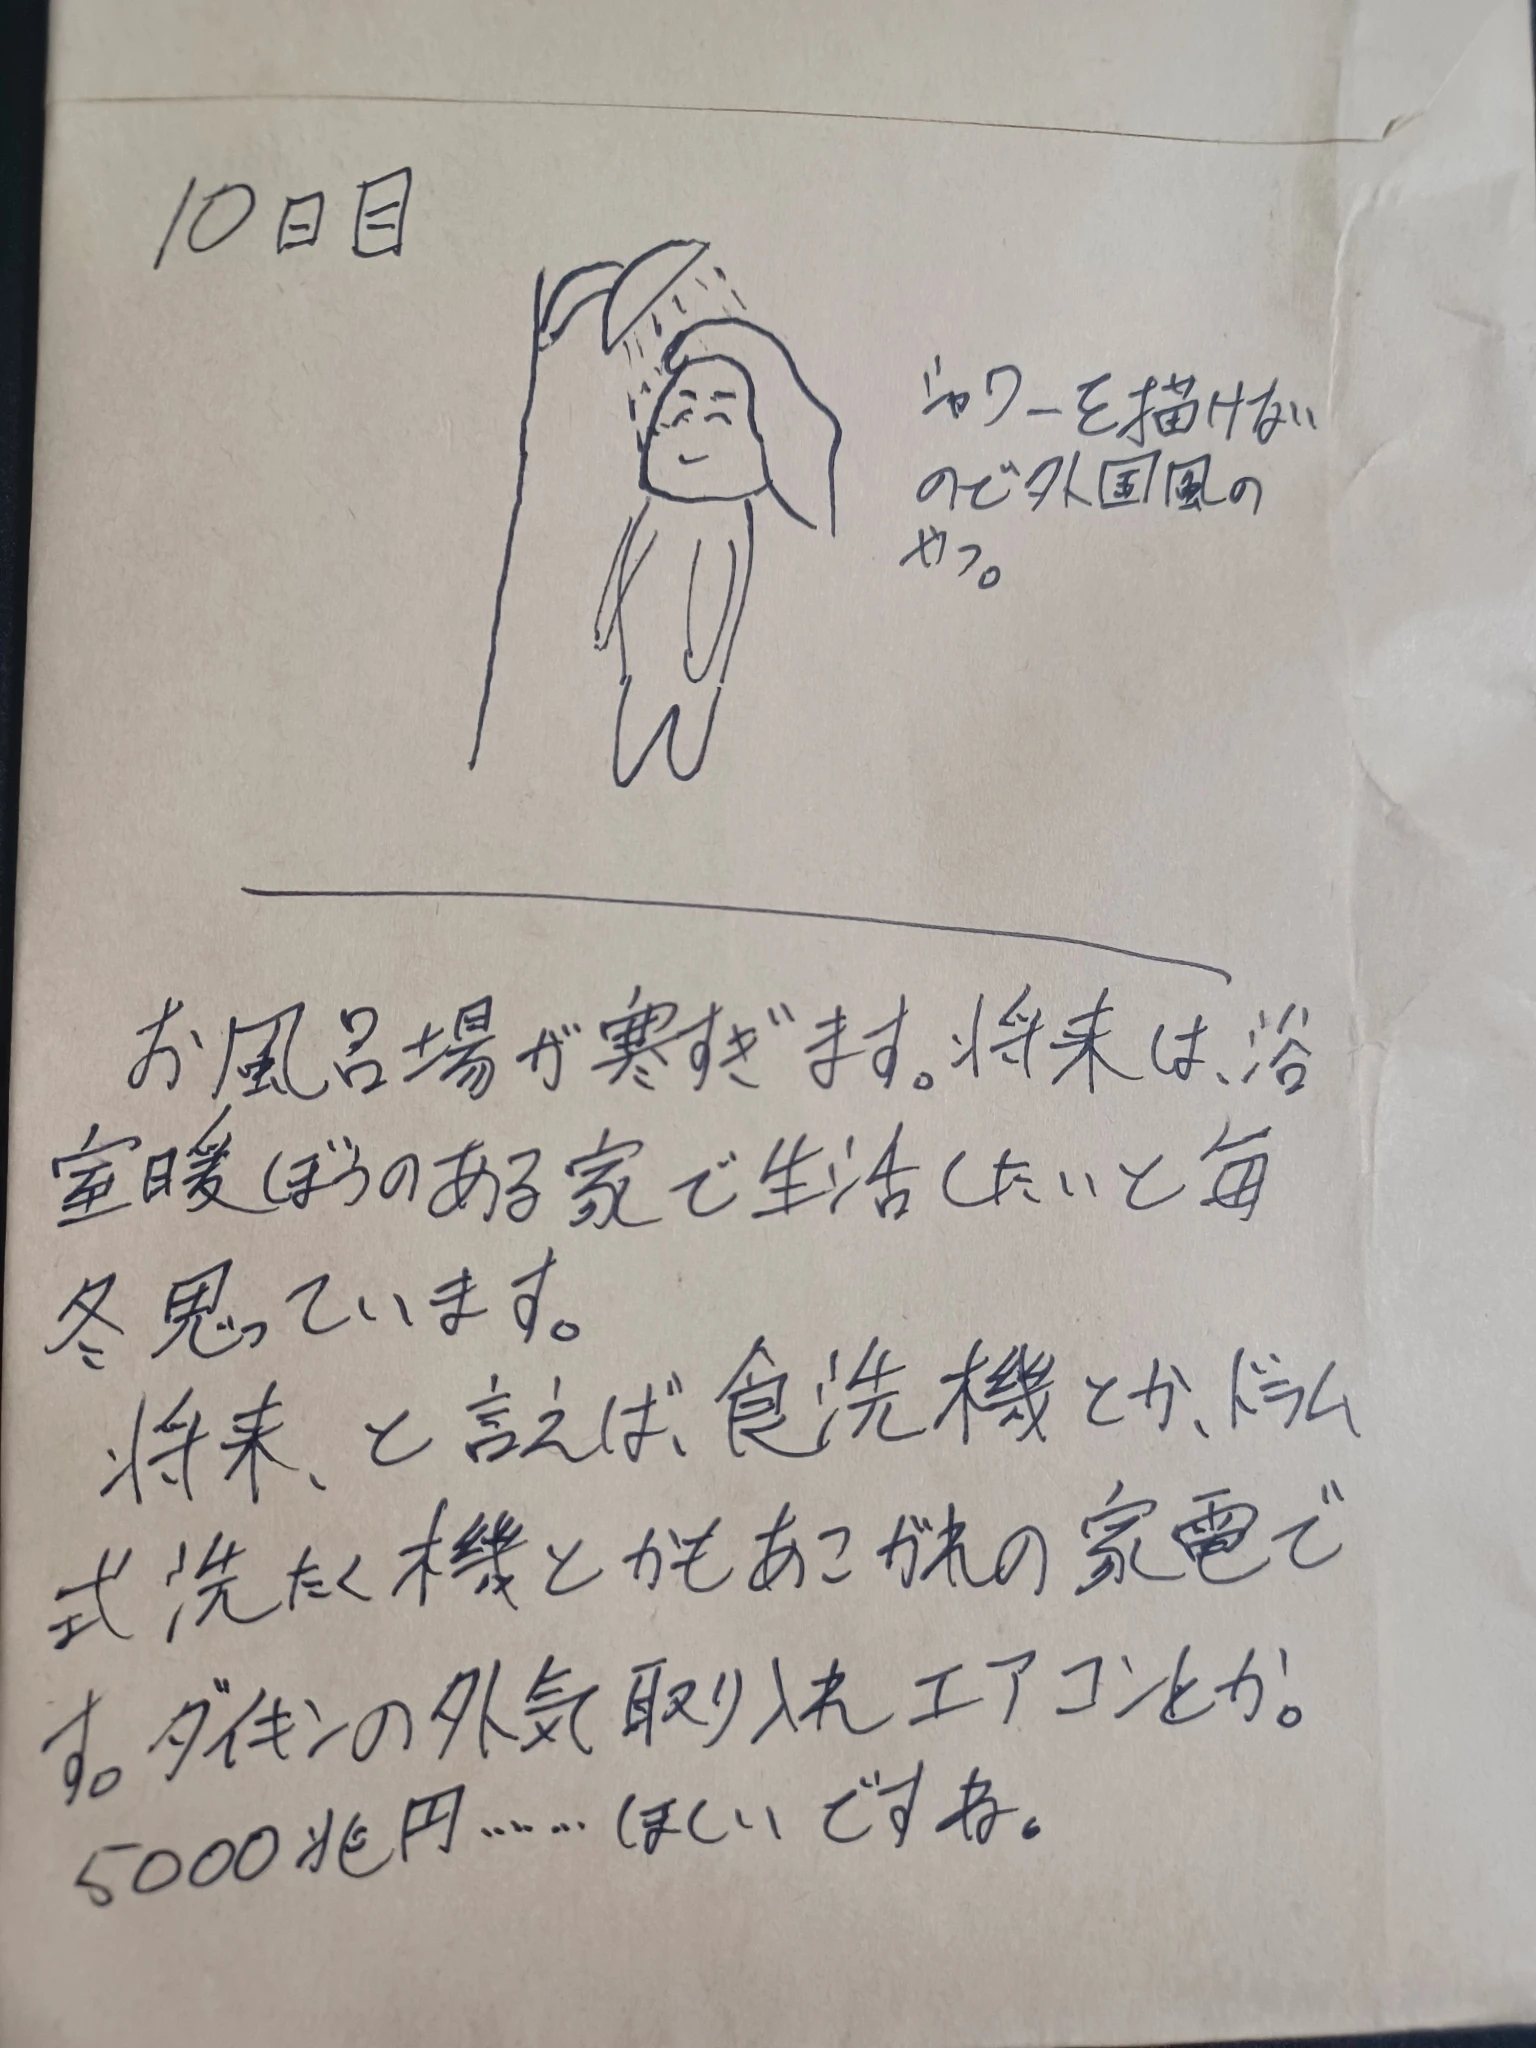 10日目
シャワーを描けない
ので外国風の
やつ。
お風呂場が寒すぎます。将来は、浴
室暖ぼうのある家で生活したいと毎
冬思っています。
将来、と言えば、食洗機とか、ドラム
式洗たく機とかもあこがれの家電で
す。ダイキンの外気取り入れエアコンとか。
5000兆円……ほしいですね。